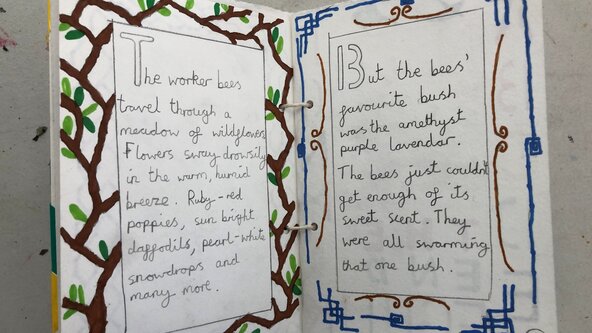 The worker bees
travel through a
meadow of wildflowers
Flowers sway drowsily
in the warm, humid
breeze. Ruby-red
poppies, sun bright
daffodils, pearl-white
snowdrops and
many more.
But the bees'
favourite bush
was the amethyst
purple lavendar.
The bees just couldn't
get enough of its
sweet scent. They
were all swarming
that one bush.